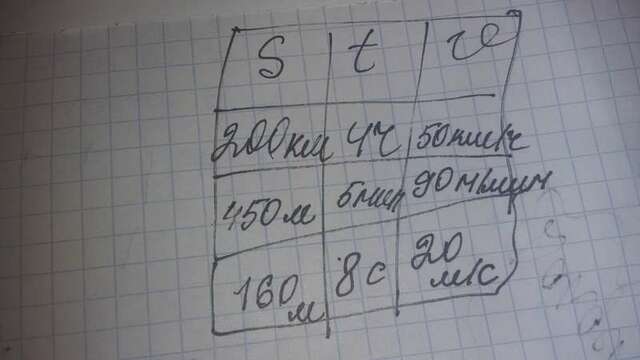 S t v
200км 4ч 50км/ч
450м 5мин 90м/мин
160м 8с 20м/с